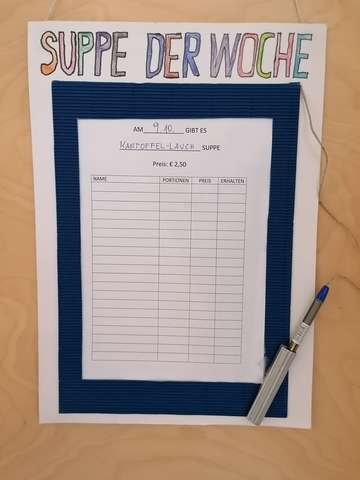 SUPPE DER WOCHE
AM 9.10. GIBT ES
KARTOFFEL-LAUCH SUPPE
Preis: € 2,50
NAME PORTIONEN PREIS ERHALTEN